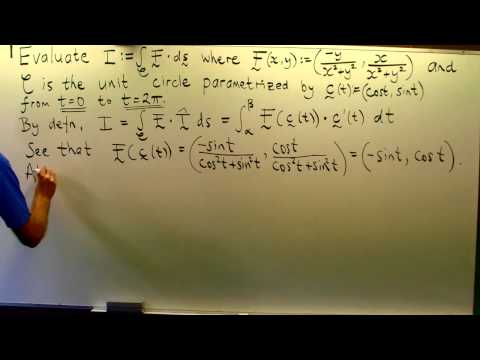 Evaluate I := ∫_C F · ds where F(x,y) := (-y/(x²+y²), x/(x²+y²)) and
C is the unit circle parametrized by c(t) = (cost, sint)
from t=0 to t=2π.
By defn, I = ∫_C F · T̂ ds = ∫_α^β F(c(t)) · c'(t) dt
See that F(c(t)) = (-sint/(cos²t+sin²t), cost/(cos²t+sin²t)) = (-sint, cost).
A